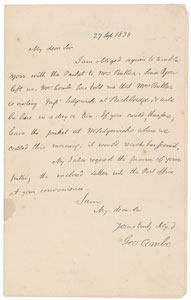 27 Sep 1838
My dear Sir
I am obliged again to trouble
you with the Packet to Mrs Butler. Since Ayer
left us, Mrs Combe has told me that Mrs Butler
is visiting Miss Sedgwick at Stockbridge, & will
be here in a day or two. If you could therefore
leave the packet at Mr Sedgwick's where we
called this morning, it would reach her from
May I also request the favour of your
putting the inclosed letter into the Post office
at your convenience.
I am
My dear Sir
Yours truly
Geo. Combe